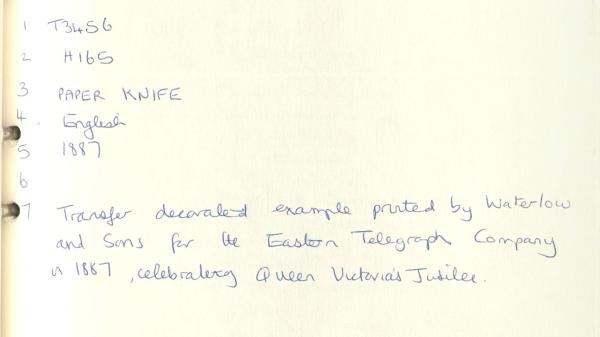 1 T3456
2 H165
3 PAPER KNIFE
4. English
5 1887
6
7 Transfer decorated example printed by Waterlow
and Sons for the Eastern Telegraph Company
in 1887, celebrating Queen Victoria's Jubilee.